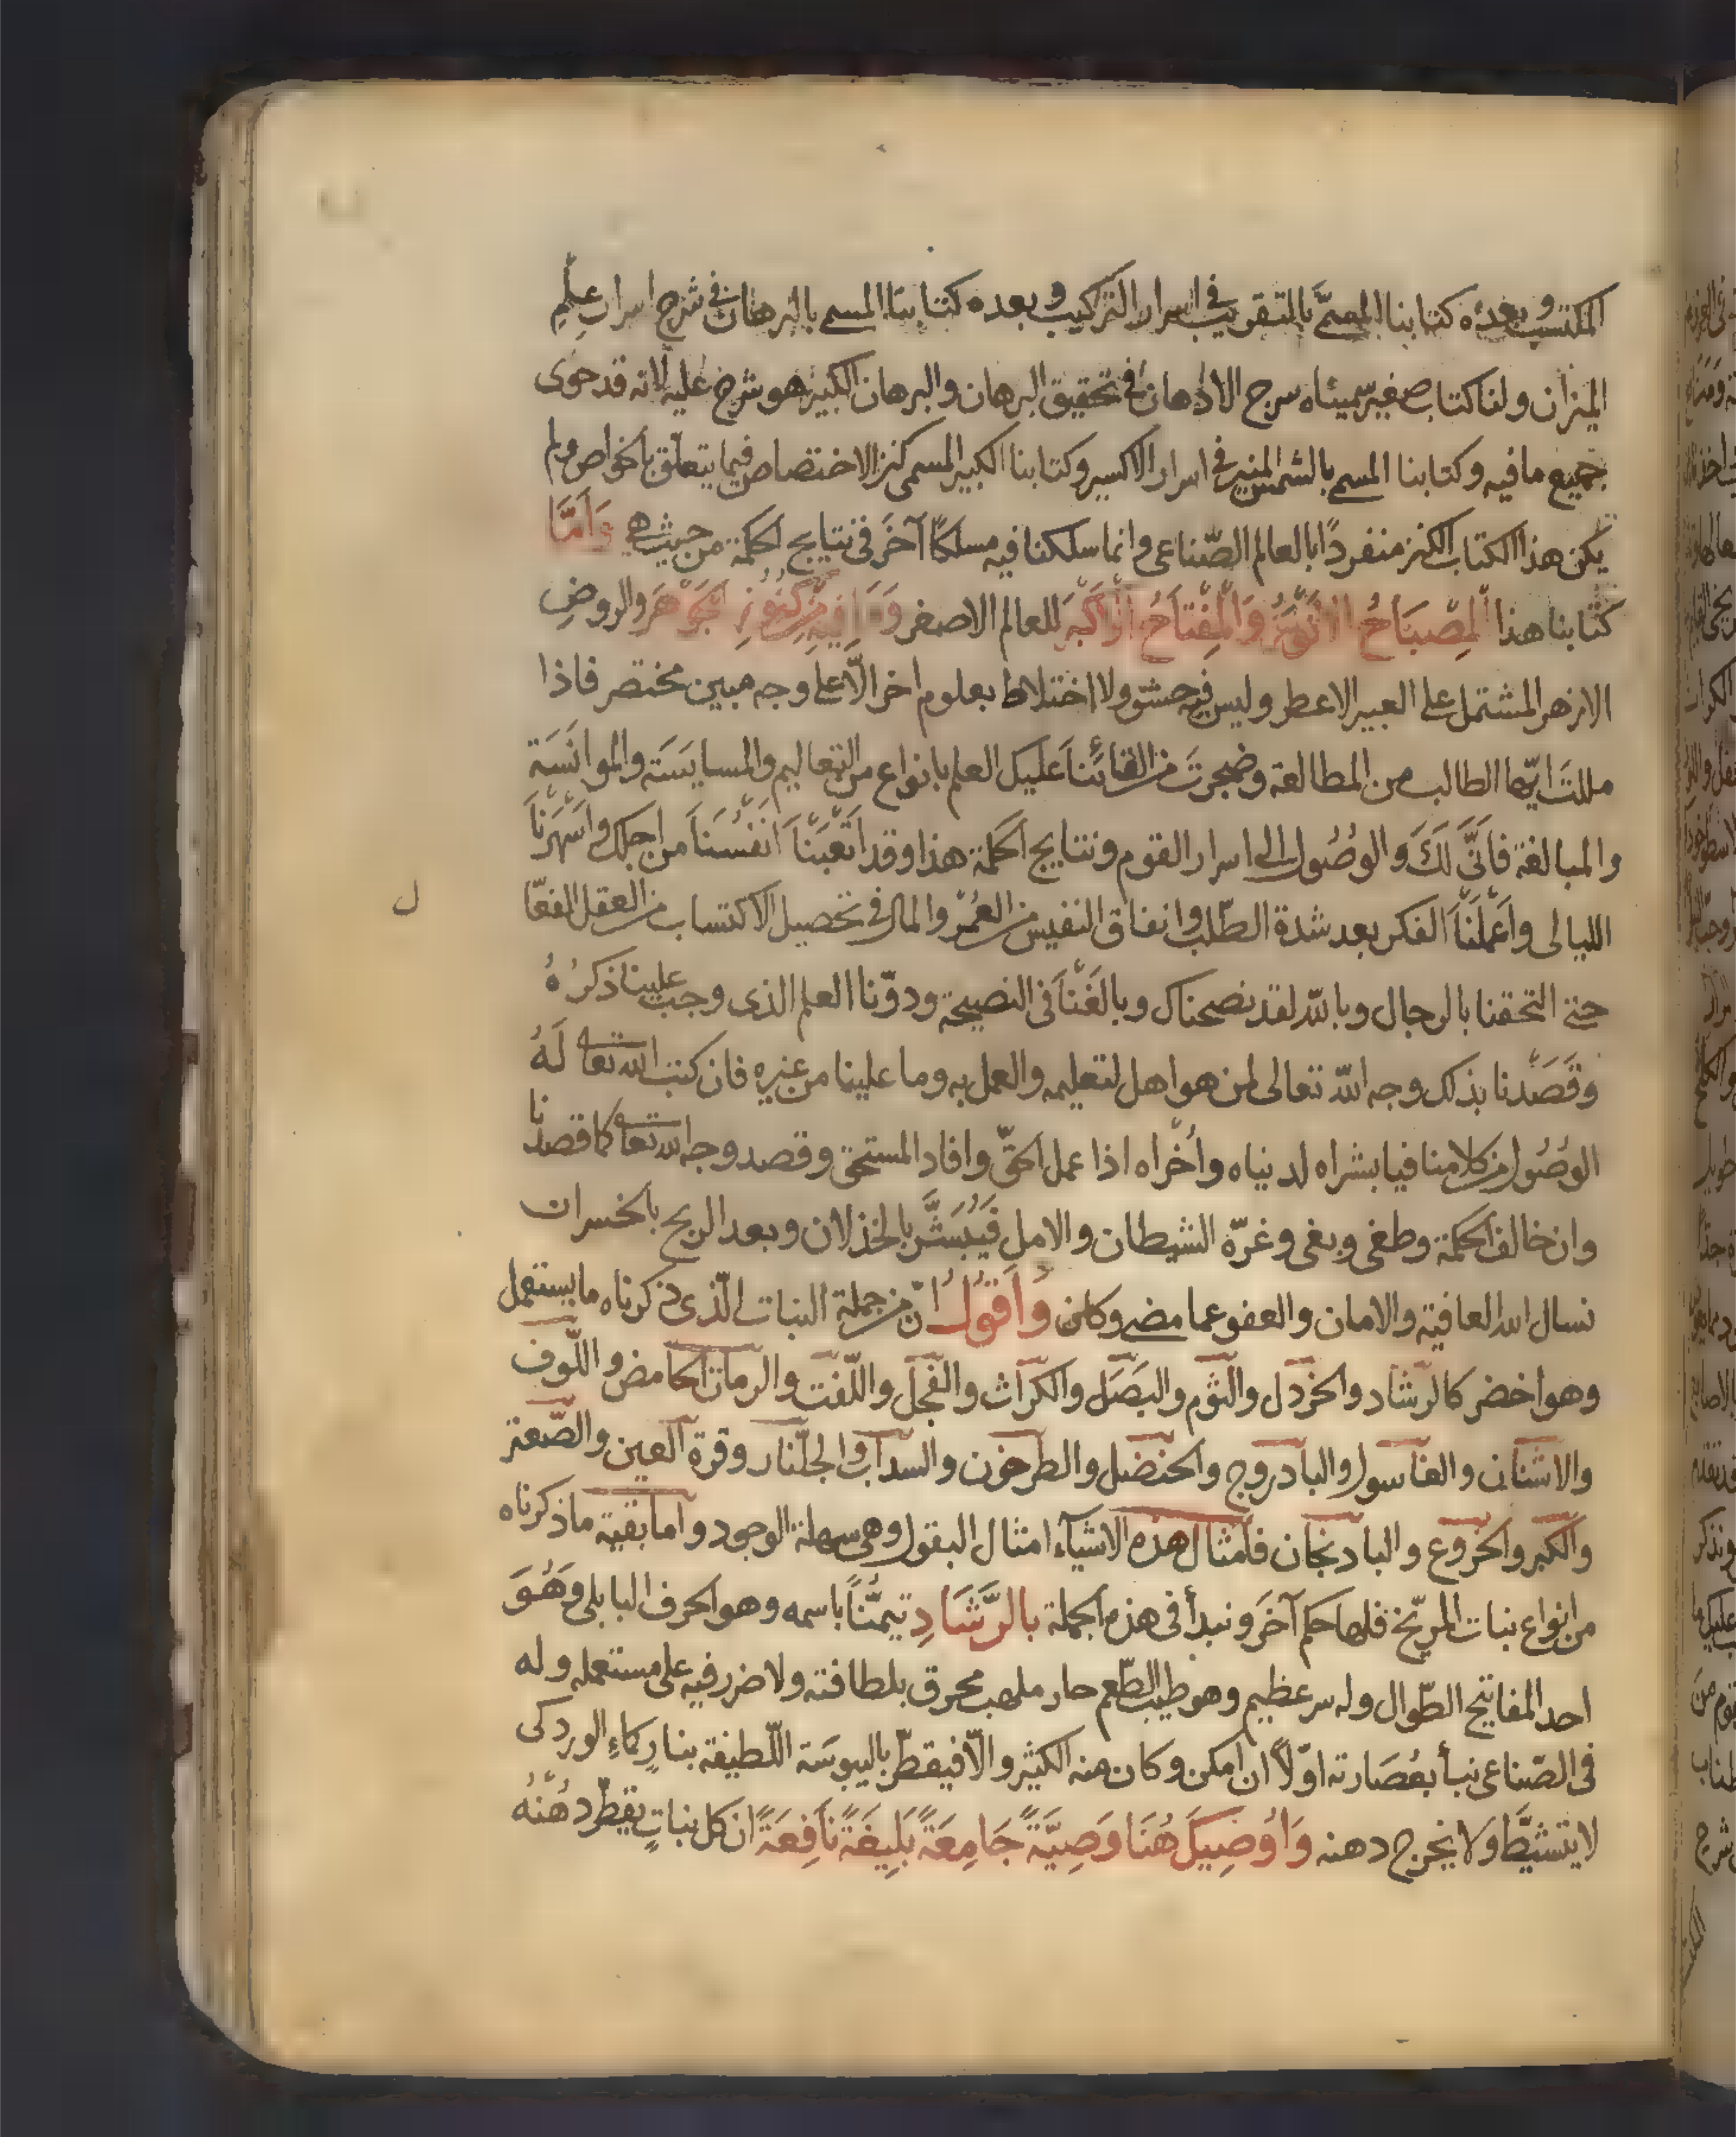 المكتسب وبعده كتابنا المسمَّى بالتقريب في اسرار التركيب وبعده كتابنا المسمى بالبرهان في شرح اسرار علمِ
الميزان ولنا كتاب صغير سمّيناه سرج الاذهان في تحقيق البرهان والبرهان الكبير هو شرح عليه لانه قد حوى
جميع ما فيه وكتابنا المسمى بالشمس المنير في اسرار الاكسير وكتابنا الكبير المسمى كنز الاختصاص فيما يتعلّق بالخواص ولم
يكن هذا الكتاب الكنز منفردًا بالعالم الصّناعى وانما سلكنا فيه مسلكًا آخَر فى نتايج الحكمة من حيث هي وَاَمَّا
كتابنا هذا المِصْبَاحُ وَالْمِفْتَاحُ للعالم الاصغر فِيهِ مِنْ كُنُوزِ الجَوْهَر والروضِ
الازهر المشتمل على العبير الاعطر وليس فيه حشو ولا اختلاط بعلوم اخر الّا على وجه مبين مختصر فاذا
مللتَ ايّها الطالب من المطالعة وضجرتَ من القائنا عليك العلم بانواع من التعاليم والمسايسَة والموانَسَة
والمبالغة فاَنَّى لَكَ والوصُول الى اسرار القوم ونتايج الحكمة هذا وقد اَتْعَبْنَا اَنفُسَنَا من اجلك واَسْهَرْنَا
الليالى واَعْمَلْنَا الفكر بعد شدة الطّلب وانفاق النفيس من العُمْر والمال فى تحصيل الاكتساب من العقل الفعّا
ل
حتى التحقنا بالرجال وبالله لقد نصحناك وبالَغْنَا فى النصيحة ودوّنا العلم الذى وجب علينا ذكرُهُ
وقَصَدْنا بذلك وجه اللّه تعالى لمن هو اهل لتعليمه والعمل به وما علينا من غيره فان كتب الله تعا لَهُ
الوصُول من كلامنا فيا بشراه لدنياه واُخْراه اذا عمل الحقّ وافاد المستحق وقصد وجه الله تعا كما قصدنا
وان خالف الحكمة وطغى وبغى وغرّه الشيطان والامل فَيُبَشَّر بالخذلان وبعد الربح بالخسران
نسال الله العافية والامان والعفو عما مضى وكان وَاَقُولُ انّ من جملة النبات الّذى ذكرناه ما يستعمل
وهو اخضر كالرشاد والخردل والثوم والبصَل والكراث والفجل واللّفت والرمان الحامض واللّوف
والاشنان والغاسول والبادروج والحنضل والطرخون والسداب والجلّنار وقرة العين والصّعتر
والكبر والخروع والبادنجان فامثال هذه الاشيآء امثال البقول وهى سهلة الوجود واما بقية ما ذكرناه
من انواع نبات المرّيخ فلها حكم آخَر ونبدأ فى هذه الجملة بالرَّشَادِ تيمّنًا باسمه وهو الحرف البابلى وَهُوَ
احد المفاتيح الطّوال وله سر عظيم وهو طيب الطّعم حار ملهب محرق بلطافته ولا ضرر فيه على مستعمله وله
فى الصّناعى نبأ بعُصَارته اوّلًا ان امكن وكان منه الكثير والّا فيقطّر باليبوسَة اللّطيفة بنارٍ كماءِ الورد كى
لا يتشيَّط ولا يخرج دهنه وَاُوْصِيكَ هُنَا وَصِيَّةً جَامِعَةً بَلِيغَةً نَافِعَةً ان كل نباتٍ يقطّر دهْنُهُ